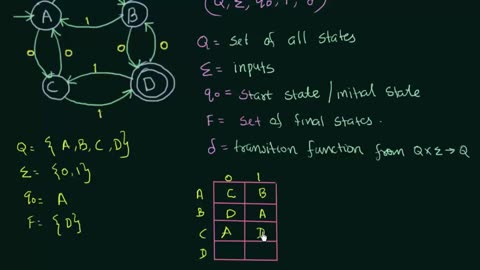 (Q, Σ, q0, F, δ)
A
1
B
0
0
0
0
1
C
D
1
Q = set of all states
Σ = inputs
q0 = start state / initial state
F = set of final states.
δ = transition function from Q×Σ→Q
Q = {A,B,C,D}
Σ = {0,1}
q0 = A
F = {D}
0 1
A C B
B D A
C A D
D